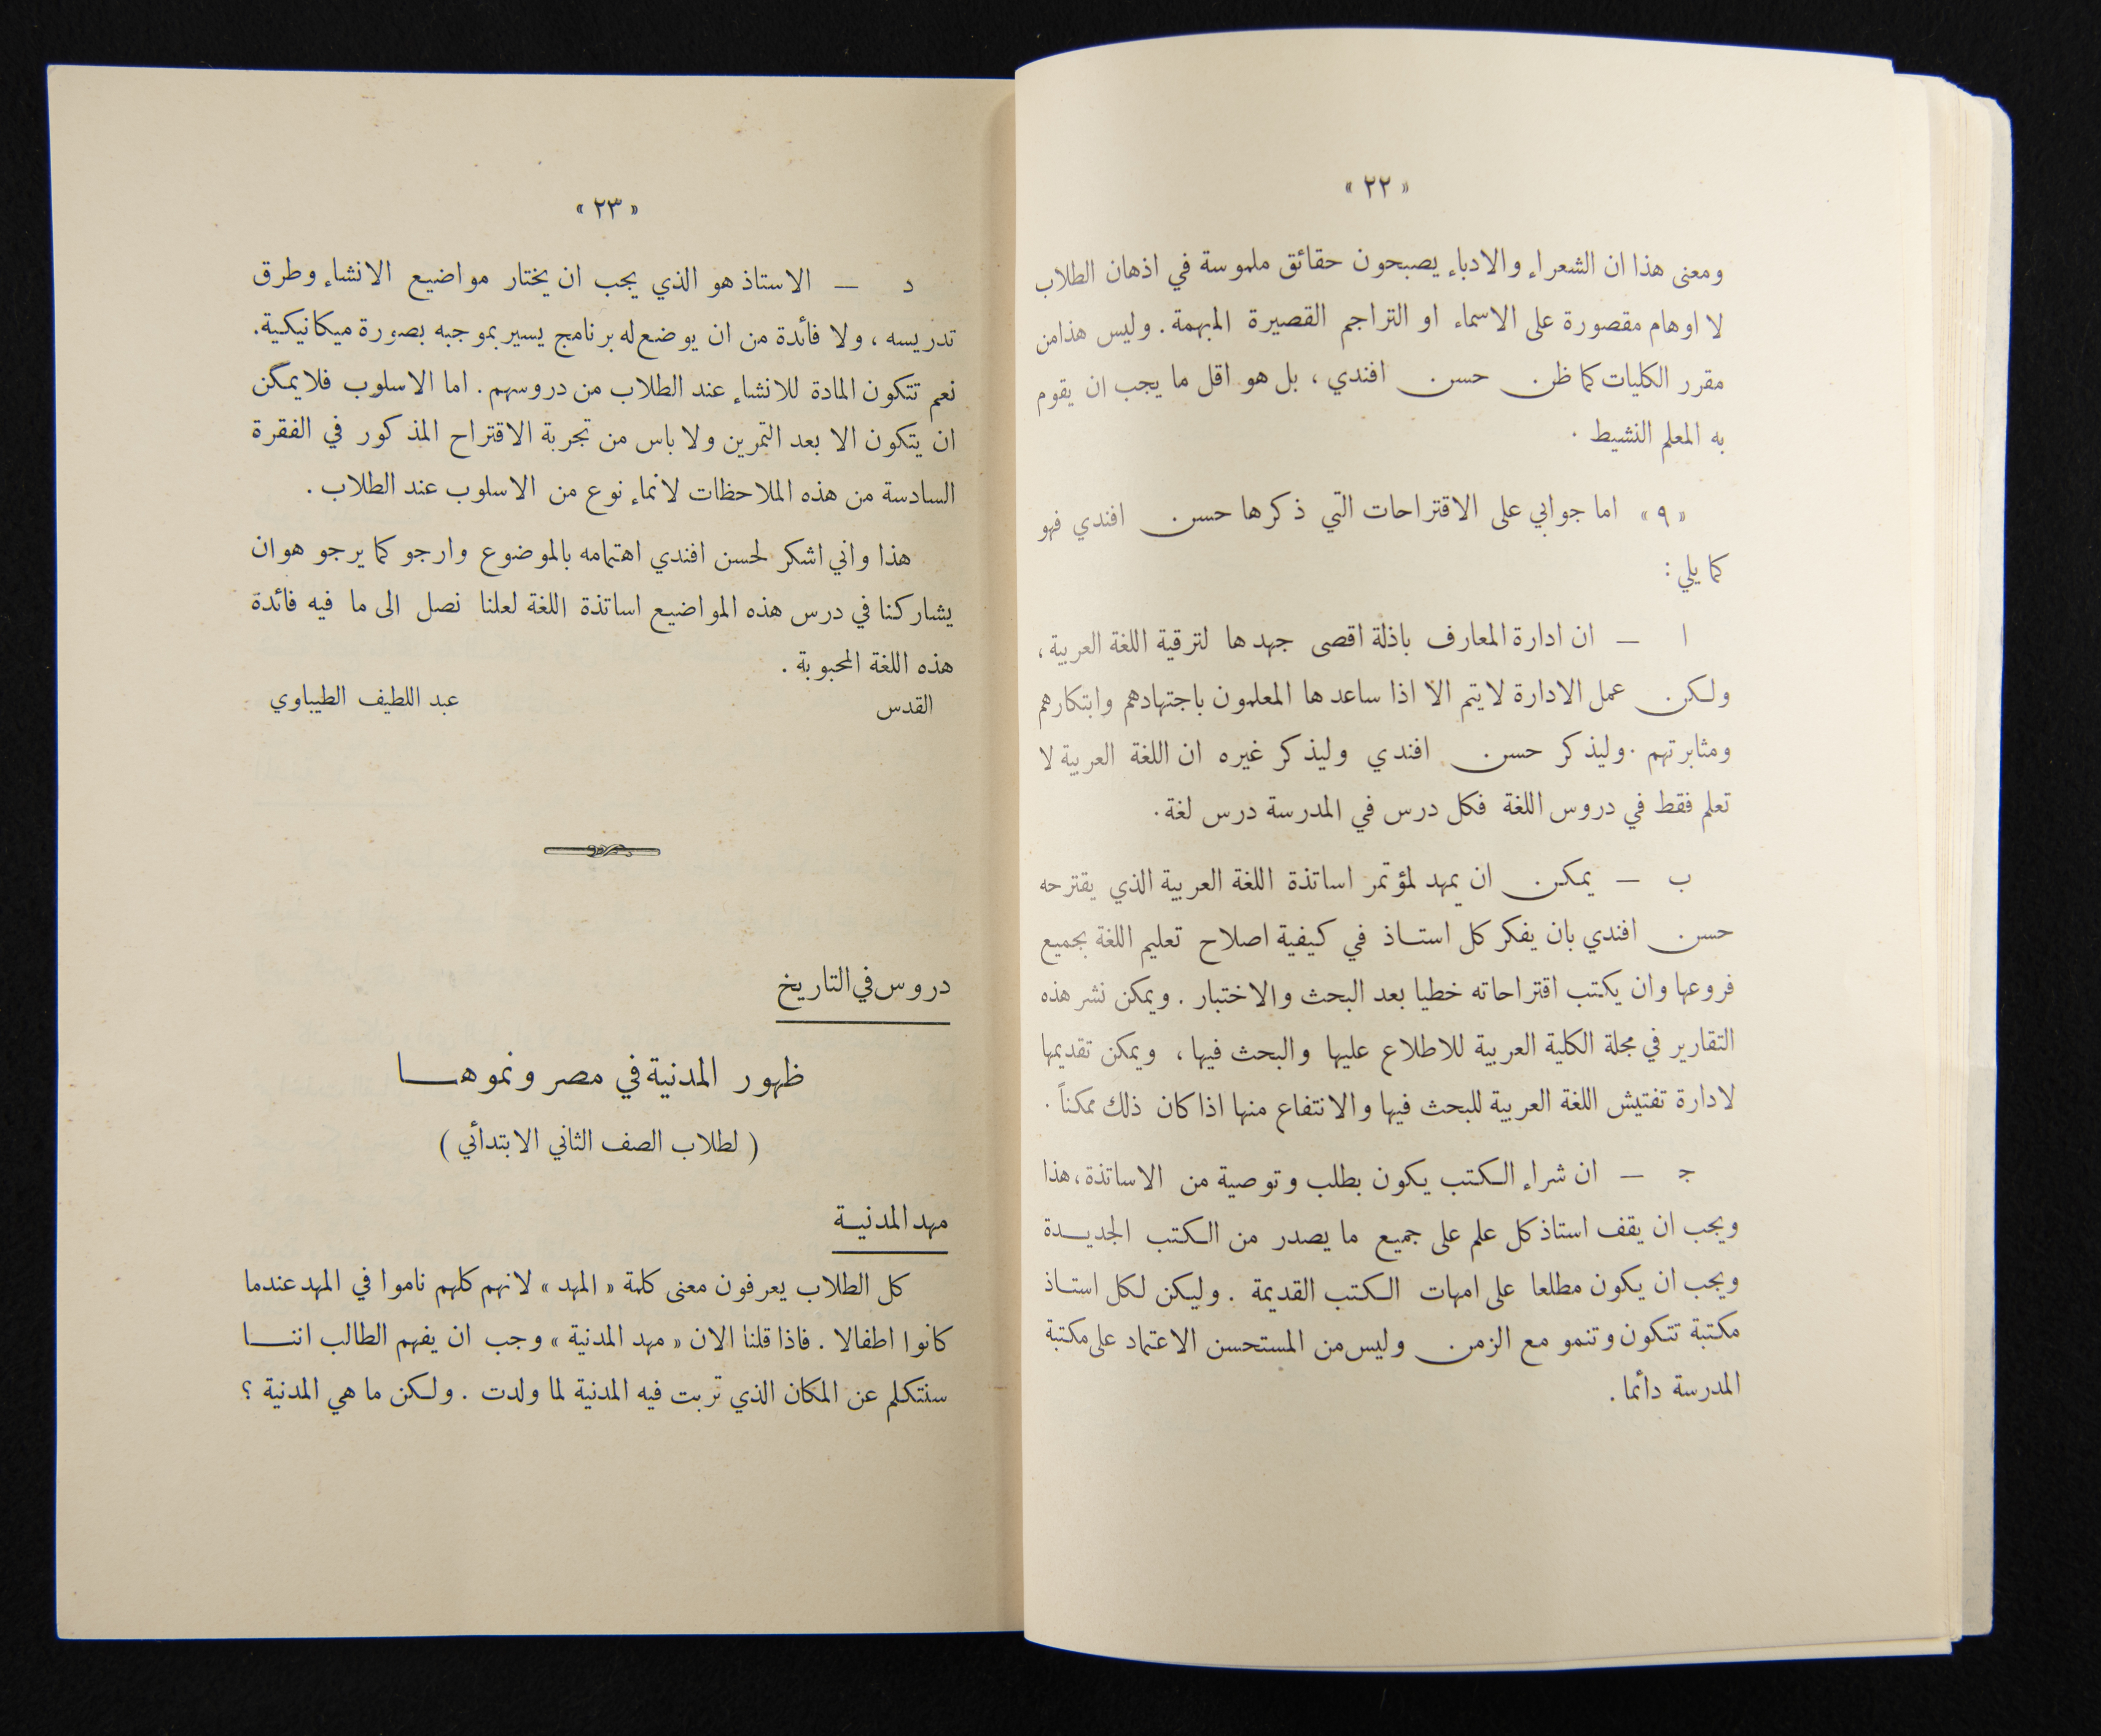 « ٢٢ »
ومعنى هذا ان الشعراء والادباء يصبحون حقائق ملموسة في اذهان الطلاب
لا اوهام مقصورة على الاسماء او التراجم القصيرة المبهمة . وليس هذا من
مقرر الكليات كما ظن حسن افندي ، بل هو اقل ما يجب ان يقوم
به المعلم النشيط .
« ٩ » اما جوابي على الاقتراحات التي ذكرها حسن افندي فهو
كما يلي :
ا — ان ادارة المعارف باذلة اقصى جهدها لترقية اللغة العربية ،
ولكن عمل الادارة لا يتم الا اذا ساعدها المعلمون باجتهادهم وابتكارهم
ومثابرتهم . وليذكر حسن افندي وليذكر غيره ان اللغة العربية لا
تعلم فقط في دروس اللغة فكل درس في المدرسة درس لغة .
ب — يمكن ان يمهد لمؤتمر اساتذة اللغة العربية الذي يقترحه
حسن افندي بان يفكر كل استاذ في كيفية اصلاح تعليم اللغة بجميع
فروعها وان يكتب اقتراحاته خطيا بعد البحث والاختبار . ويمكن نشر هذه
التقارير في مجلة الكلية العربية للاطلاع عليها والبحث فيها ، ويمكن تقديمها
لادارة تفتيش اللغة العربية للبحث فيها والانتفاع منها اذا كان ذلك ممكناً .
ج — ان شراء الكتب يكون بطلب وتوصية من الاساتذة ، هذا
ويجب ان يقف استاذ كل علم على جميع ما يصدر من الكتب الجديدة
ويجب ان يكون مطلعا على امهات الكتب القديمة . وليكن لكل استاذ
مكتبة تتكون وتنمو مع الزمن وليس من المستحسن الاعتماد على مكتبة
المدرسة دائما .
« ٢٣ »
د — الاستاذ هو الذي يجب ان يختار مواضيع الانشاء وطرق
تدريسه ، ولا فائدة من ان يوضع له برنامج يسير بموجبه بصورة ميكانيكية .
نعم تتكون المادة للانشاء عند الطلاب من دروسهم . اما الاسلوب فلا يمكن
ان يتكون الا بعد التمرين ولا باس من تجربة الاقتراح المذكور في الفقرة
السادسة من هذه الملاحظات لانماء نوع من الاسلوب عند الطلاب .
هذا واني اشكر لحسن افندي اهتمامه بالموضوع وارجو كما يرجو هو ان
يشاركنا في درس هذه المواضيع اساتذة اللغة لعلنا نصل الى ما فيه فائدة
هذه اللغة المحبوبة .
القدس عبد اللطيف الطيباوي
دروس في التاريخ
ظهور المدنية في مصر ونموها
( لطلاب الصف الثاني الابتدائي )
مهد المدنية
كل الطلاب يعرفون معنى كلمة « المهد » لانهم كلهم ناموا في المهد عندما
كانوا اطفالا . فاذا قلنا الان « مهد المدنية » وجب ان يفهم الطالب اننا
سنتكلم عن المكان الذي تربت فيه المدنية لما ولدت . ولكن ما هي المدنية ؟